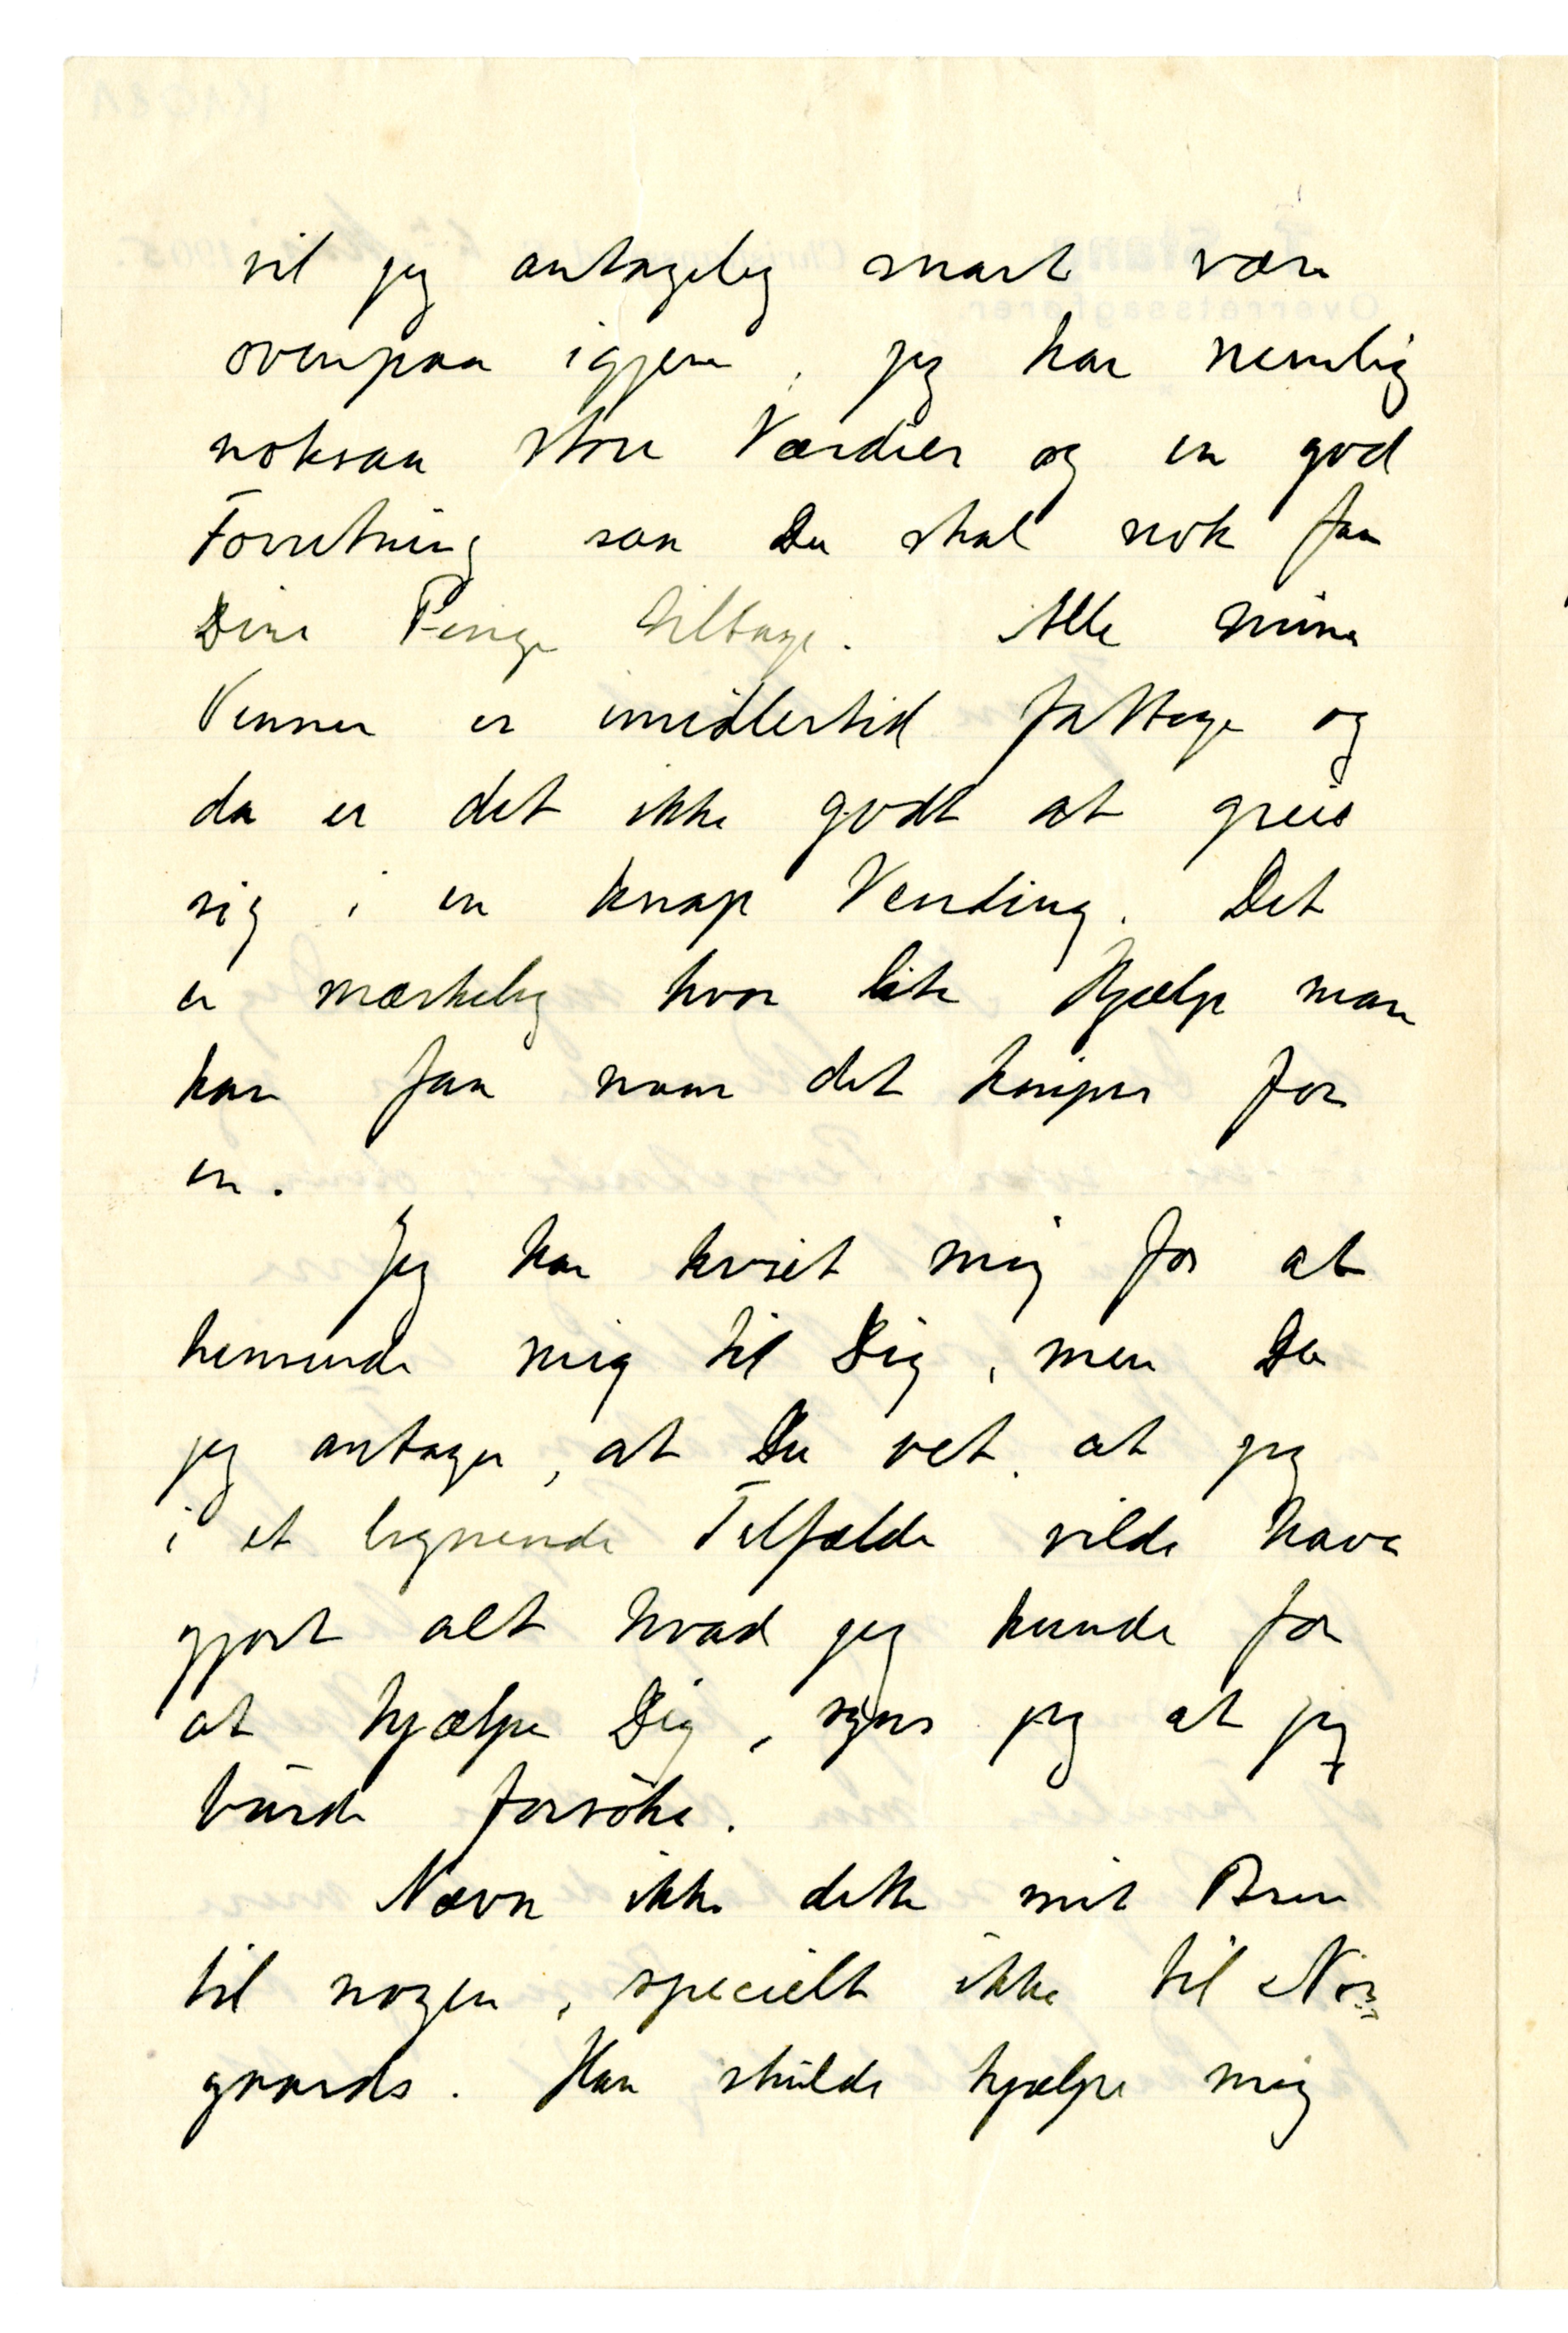 vil jeg antagelig snart være
ovenpaa igjen, jeg har nemlig
noksaa store Værdier og en god
Forretning saa Du skal nok faa
Dine Penge tilbage. Alle mine
Venner er imidlertid fattige og
da er det ikke godt at greie
sig i en knap Vending. Det
er mærkelig hvor lite Hjælp man
kan faa naar det kniper for
en.
Jeg har kviet mig for at
henvende mig til Dig, men da
jeg antager, at Du vet, at jeg
i et lignende Tilfælde vilde have
gjort alt hvad jeg kunde for
at hjælpe Dig, synes jeg at jeg
burde forsöke.
Nævn ikke dette mit Brev
til nogen, specielt ikke til Nör=
gaards. Han skulde hjælpe mig